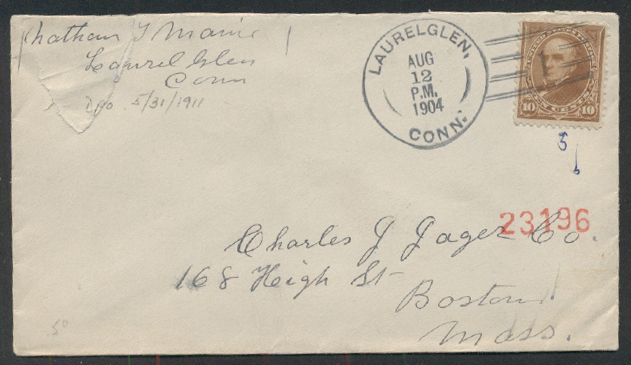 Nathan T Maine
Laurel Glen
Conn
Dpo 5/31/1911
LAURELGLEN,
AUG
12
P.M.
1904
CONN.
10 10
5
23196
Charles J Jager Co.
168 High St
Boston
Mass.
50